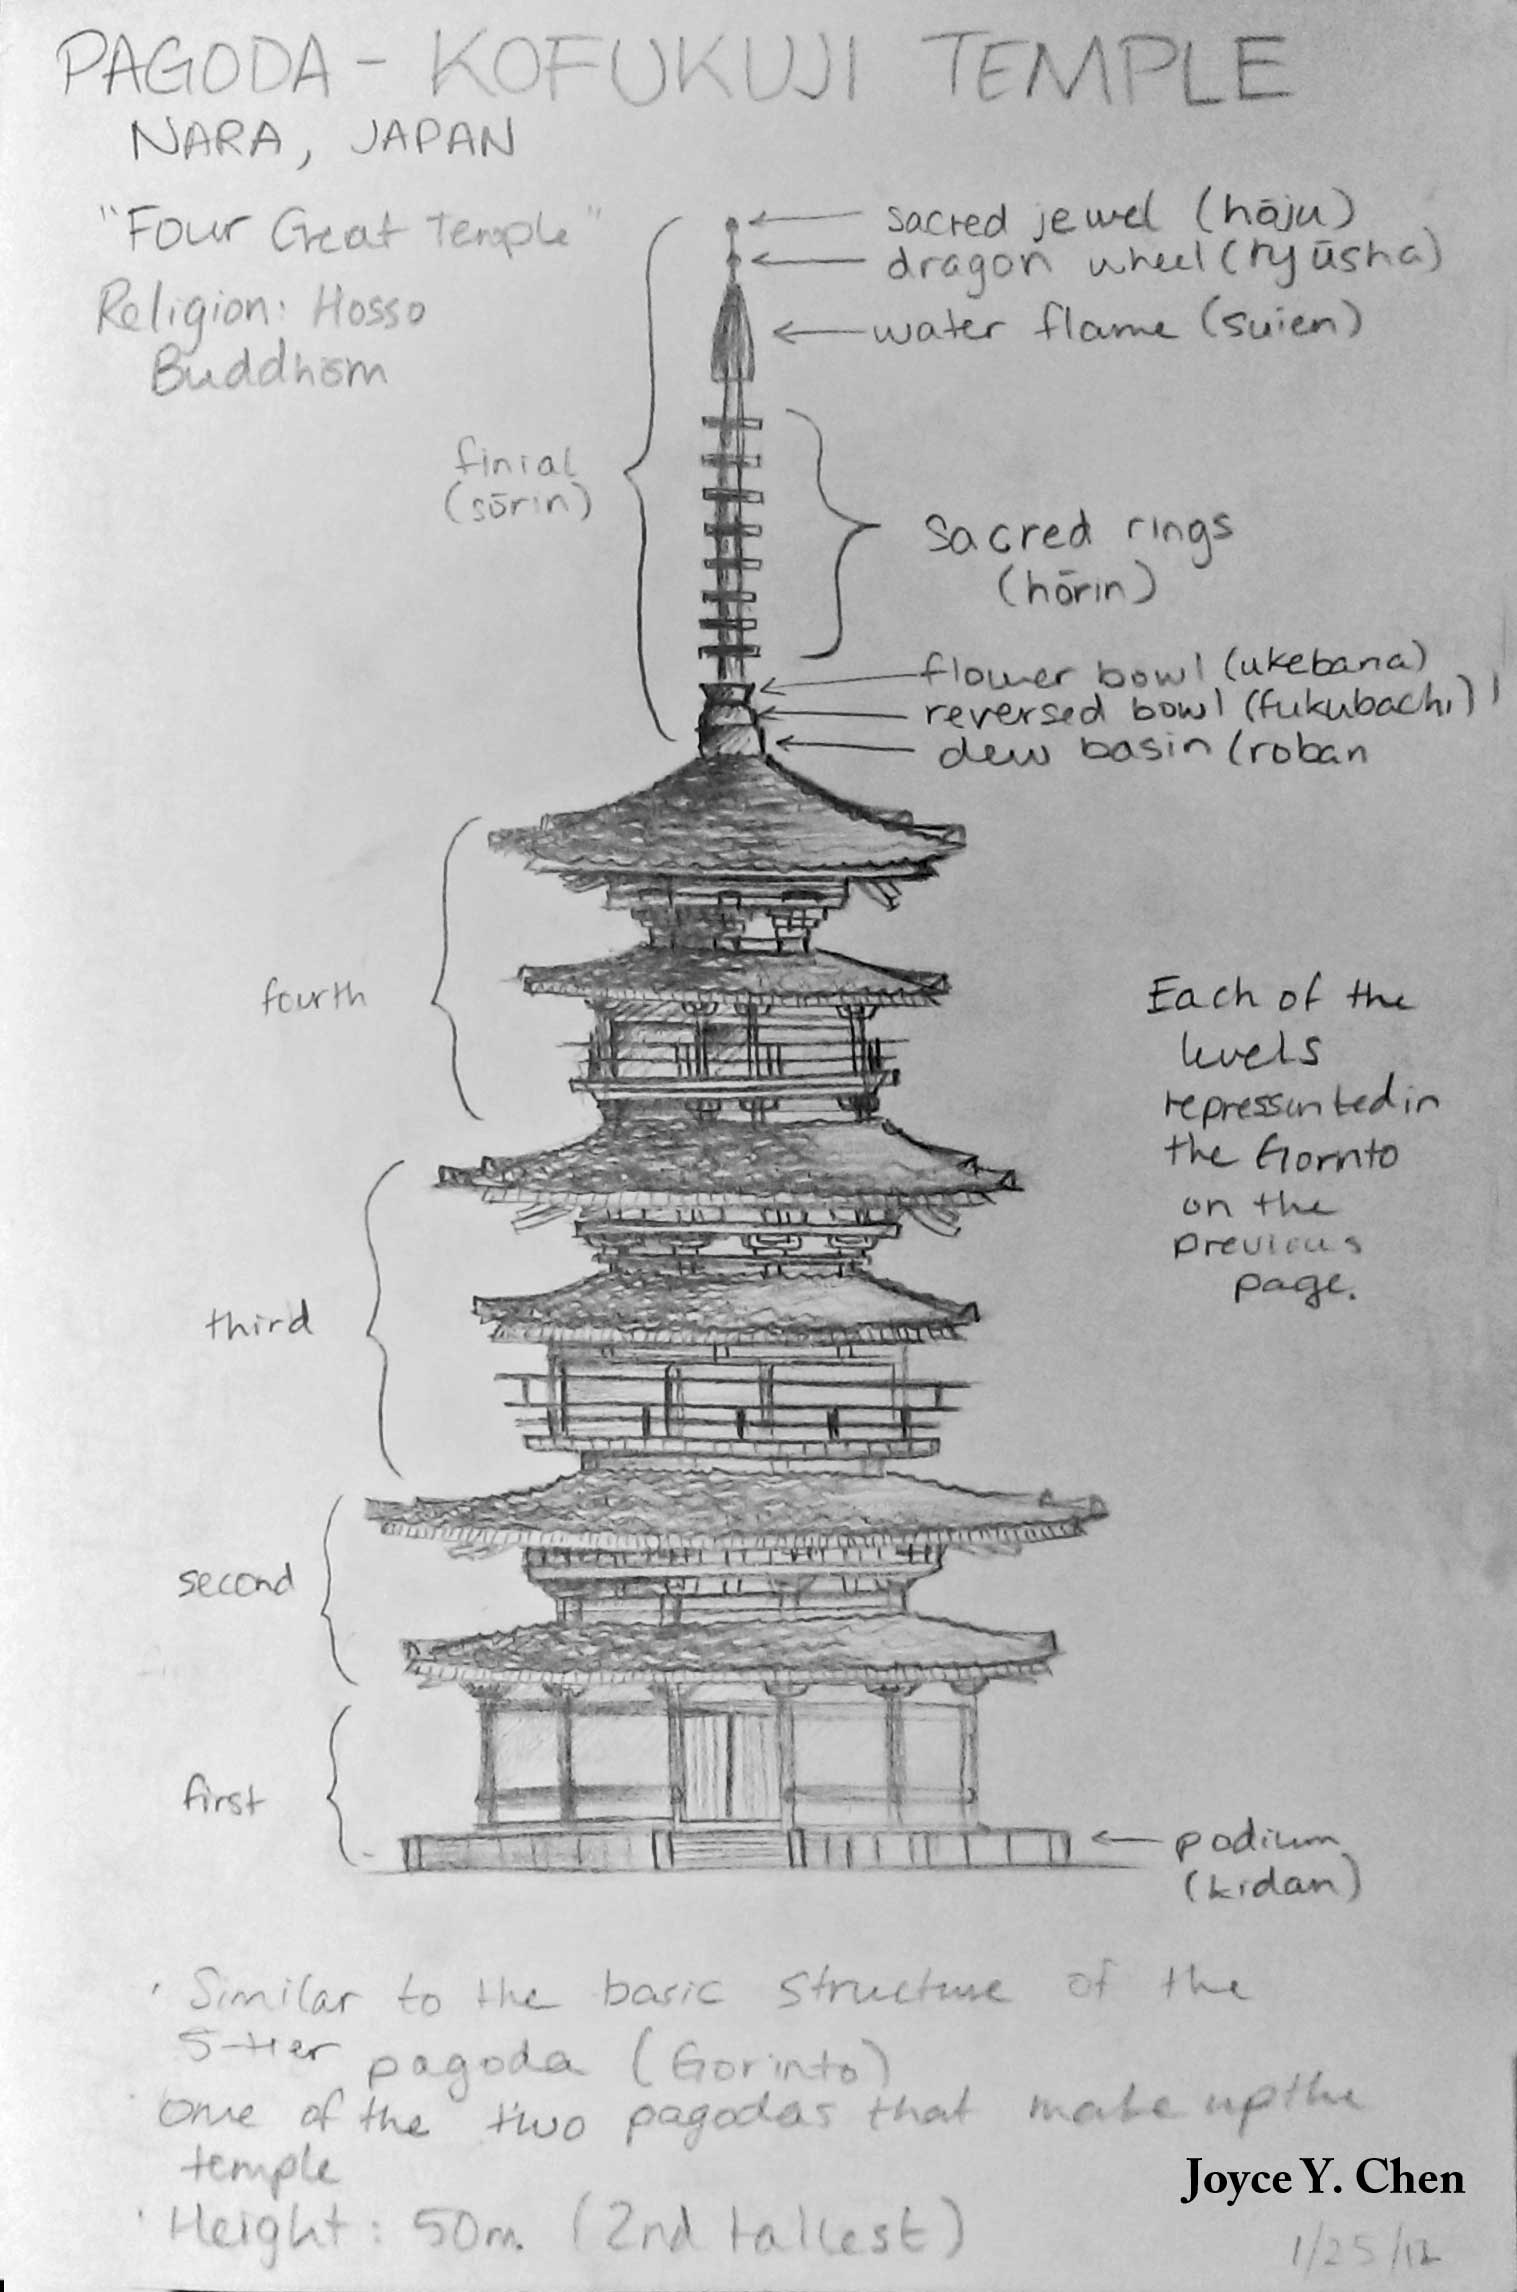 PAGODA - KOFUKUJI TEMPLE
NARA, JAPAN
"Four Great Temple"
Religion: Hosso
Buddhism
sacred jewel (hōju)
dragon wheel (ryūsha)
water flame (suien)
finial
(sōrin)
sacred rings
(hōrin)
flower bowl (ukebana)
reversed bowl (fukubachi)
dew basin (roban
fourth
Each of the
levels
represented in
the Gornto
on the
previous
page.
third
second
first
podium
(kidan)
· Similar to the basic structure of the
5-tier pagoda (Gorinto)
· One of the two pagodas that make up the
temple
· Height: 50m. (2nd tallest)
Joyce Y. Chen
1/25/12